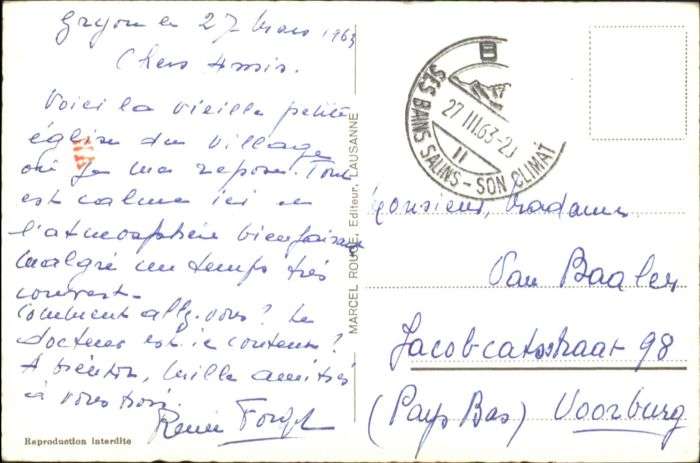 Gryon le 27 Mars 1963
Chers Amis.
Voici la vieille petite
église du village
où je me repose. Tout
est calme ici et
l'atmosphère bienfaisante
malgré un temps très
couvert.
Comment allez-vous? Le
docteur est-il content?
A bientôt, Mille amitiés
à vous trois.
Renée
Reproduction interdite
MARCEL ROUGE, Editeur, LAUSANNE
SES BAINS SALINS - SON CLIMAT
27.III.63-2
Monsieur, Madame
Van Baalen
Jacob catsstraat 98
(Pays Bas) Voorburg